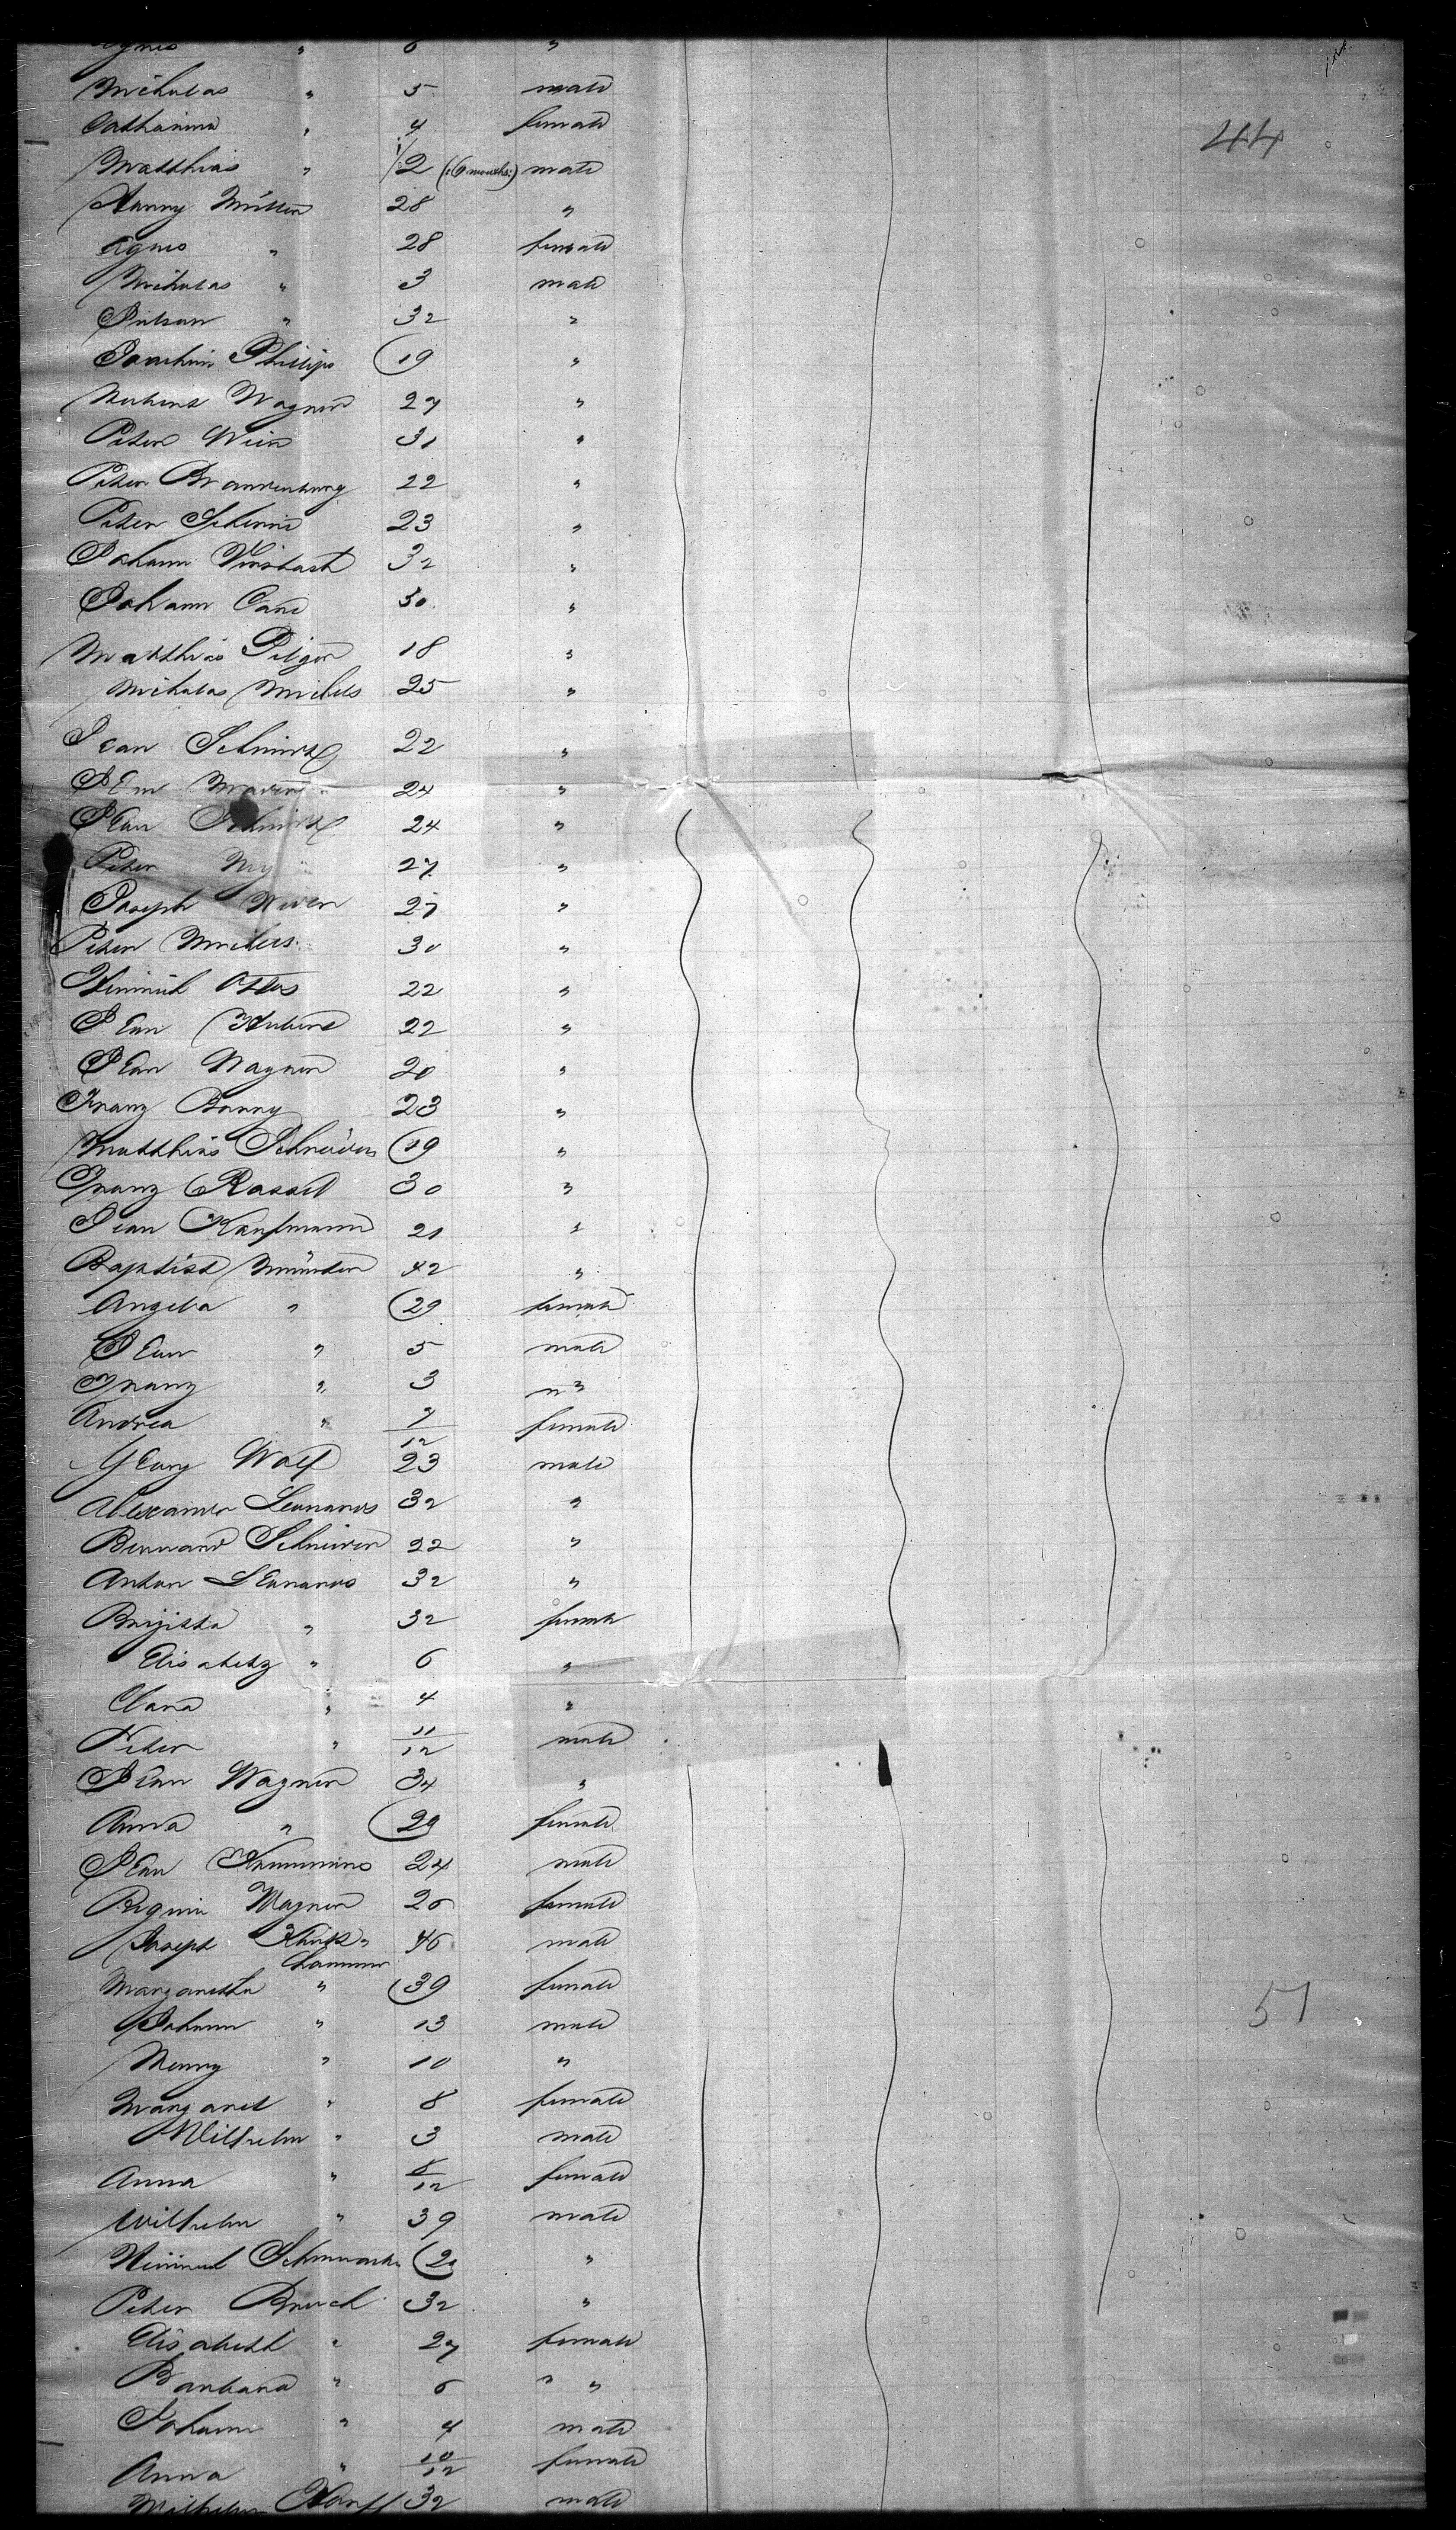 Agnes " 6 "
Nicholas " 5 male
Catharina " 4 female
44
Matthias " 1/2 (:6 months:) male
Hanny Müller 28 "
Agnes " 28 female
Nicholas " 3 male
" 32 "
Joachim Phillips 19 "
Hubert Wagner 27 "
Peter Wein 31 "
Peter Brandenburg 22 "
Peter 23 "
Johann 32 "
Johann 30 "
Matthias Pilger 18 "
Nicholas Michels 25 "
Jean Schmitz 22 "
Jean 24 "
Jean Schmitz 24 "
Peter Ney 27 "
Joseph 27 "
Peter Michels 30 "
Heinrich Ottes 22 "
Jean Hubert 22 "
Jean Wagner 20 "
Franz Bonny 23 "
Matthias Schneider 19 "
Franz Rassel 30 "
Jean Kaufmann 21 "
Baptist Münster 42 "
Angela " 29 female
Jean " 5 male
Franz " 3 "
Andrea " 7/12 female
Georg Wolf 23 male
Alexander Leonards 32 "
Bernard Schneider 22 "
Anton Leonards 32 "
Brijitta " 32 female
Elisabeth " 6 "
Clara " 4 "
Peter " 11/12 male
Jean Wagner 34 "
Anna " 29 female
Jean 24 male
Regina Wagner 26 female
Joseph 46 male
Margaretha " 39 female
Johann " 13 male
51
Henry " 10 "
Margaret " 8 female
Wilhelm " 3 male
Anna " 5/12 female
Wilhelm " 39 male
Heinrich "
Peter Bruch 32 "
Elisabeth " 27 female
Barbara " 6 " "
Johann " 4 male
Anna " 10/12 female
Wilhelm 32 male